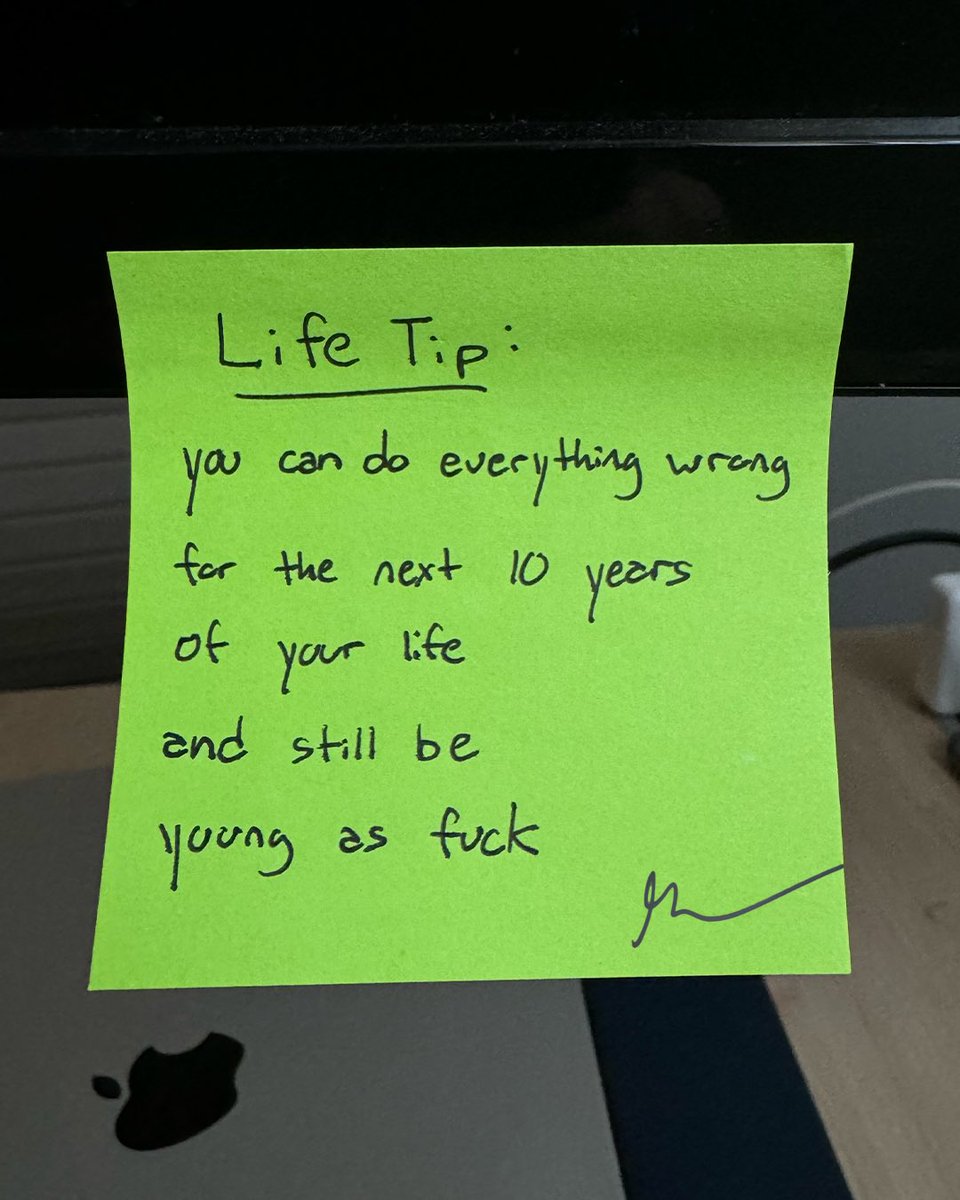 Life Tip:
you can do everything wrong
for the next 10 years
of your life
and still be
young as fuck